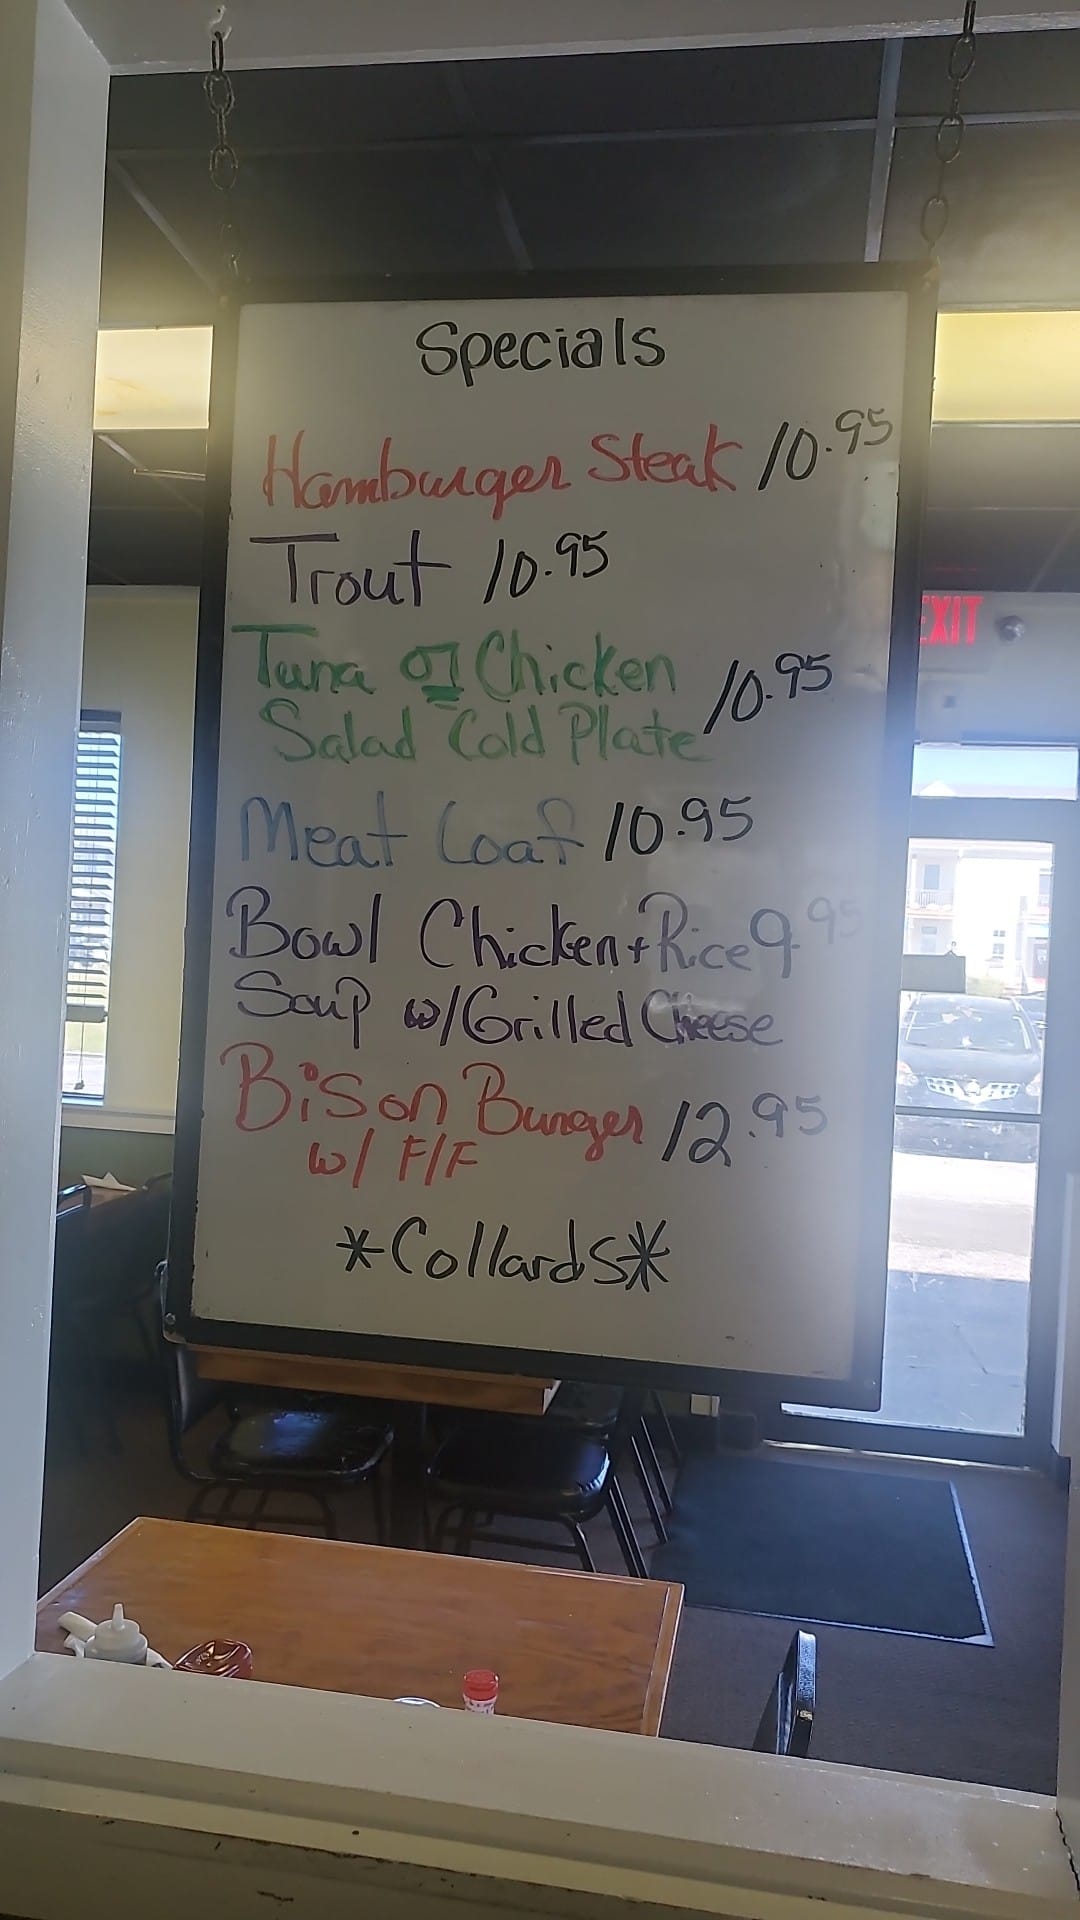 Specials
Hamburger Steak 10.95
Trout 10.95
Tuna or Chicken
Salad Cold Plate 10.95
Meat Loaf 10.95
Bowl Chicken + Rice 9.95
Soup w/Grilled Cheese
Bison Burger 12.95
w/ F/F
*Collards*
EXIT